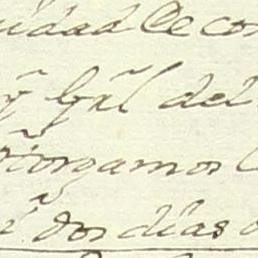 uidad de con
y Gral del
otorgamos
dos dias